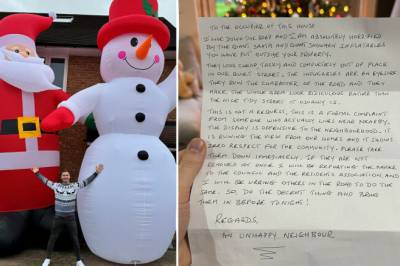 TO THE OCCUPIER OF THIS HOUSE
I LIVE DOWN THE ROAD AND I AM ABSOLUTELY HORRIFIED
BY THE GIANT SANTA AND GIANT SNOWMAN INFLATABLES
YOU HAVE PUT OUTSIDE YOUR PROPERTY.
THEY LOOK CHEAP, TACKY AND COMPLETELY OUT OF PLACE
IN OUR QUIET STREET. THE INFLATABLES ARE AN EYESORE
THEY RUIN THE CHARACTER OF THE ROAD AND THEY
MAKE THE WHOLE AREA LOOK RIDICULOUS RATHER THAN
THE NICE TIDY STREET IT USUALLY IS.
THIS IS NOT A REQUEST, THIS IS A FORMAL COMPLAINT
FROM SOMEONE WHO ACTUALLY LIVES HERE NEARBY.
THE DISPLAY IS OFFENSIVE TO THE NEIGHBOURHOOD, IT
IS RUINING THE VIEW FROM OUR HOMES AND IT SHOWS
ZERO RESPECT FOR THE COMMUNITY. PLEASE TAKE
THEM DOWN IMMEDIATELY. IF THEY ARE NOT
REMOVED AT ONCE I WILL BE REPORTING THE MATTER
TO THE COUNCIL AND THE RESIDENTS ASSOCIATION, AND
I WILL BE URGING OTHERS IN THE ROAD TO DO THE
SAME. SO DO THE DECENT THING AND BRING
THEM IN BEFORE TONIGHT!
REGARDS,
AN UNHAPPY NEIGHBOUR